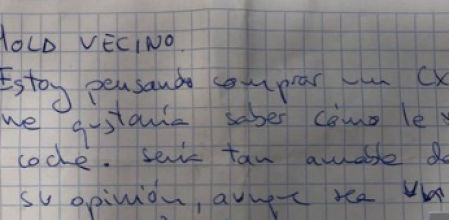 HOLD VECINO.
Estoy pensando comprar un CX
me gustaria saber cómo le v
coche. sería tan amable de
su opinión, aunque sea